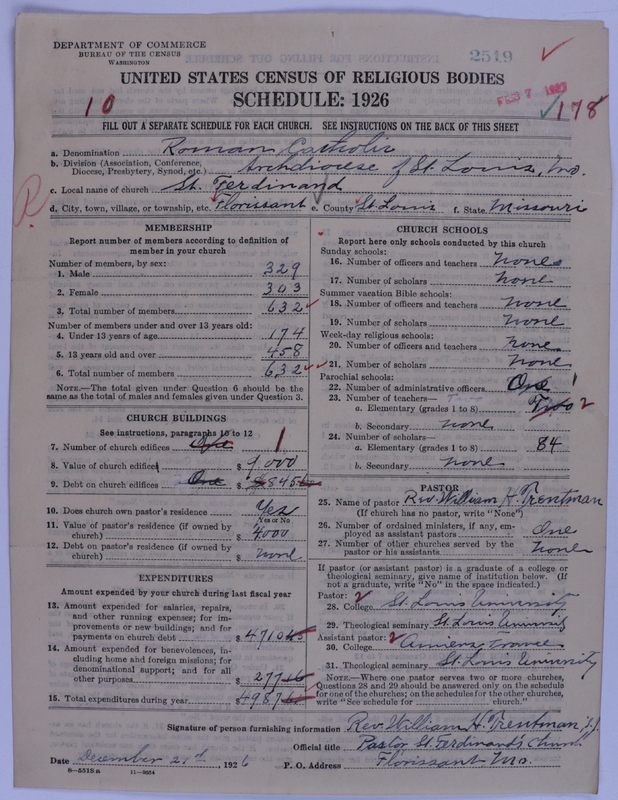 DEPARTMENT OF COMMERCE
BUREAU OF THE CENSUS
WASHINGTON
2519
UNITED STATES CENSUS OF RELIGIOUS BODIES
SCHEDULE: 1926
10
178
FILL OUT A SEPARATE SCHEDULE FOR EACH CHURCH. SEE INSTRUCTIONS ON THE BACK OF THIS SHEET
a. Denomination Roman Catholic
b. Division (Association, Conference, Diocese, Presbytery, Synod, etc.) Archdiocese of St. Louis, Mo.
c. Local name of church St. Ferdinand
d. City, town, village, or township, etc. Florissant e. County St Louis f. State Missouri
MEMBERSHIP
Report number of members according to definition of
member in your church
Number of members, by sex:
1. Male 329
2. Female 303
3. Total number of members 632
Number of members under and over 13 years old:
4. Under 13 years of age 174
5. 13 years old and over 458
6. Total number of members 632
NOTE.—The total given under Question 6 should be
same as the total of males and females given under Question 3.
CHURCH BUILDINGS
See instructions, paragraphs 10 to 12
7. Number of church edifices One 1
8. Value of church edifices $
9. Debt on church edifices One $
10. Does church own pastor's residence Yes
Yes or No
11. Value of pastor's residence (if owned by
church) $ 4000
12. Debt on pastor's residence (if owned by
church) $ none
EXPENDITURES
Amount expended by your church during last fiscal year
13. Amount expended for salaries, repairs,
and other running expenses; for im-
provements or new buildings; and for
payments on church debt $ 4710
14. Amount expended for benevolences, in-
cluding home and foreign missions; for
denominational support; and for all
other purposes $ 277
15. Total expenditures during year $ 4987
CHURCH SCHOOLS
Report here only schools conducted by this church
Sunday schools:
16. Number of officers and teachers none
17. Number of scholars none
Summer vacation Bible schools:
18. Number of officers and teachers none
19. Number of scholars none
Week-day religious schools:
20. Number of officers and teachers none
21. Number of scholars none
Parochial schools:
22. Number of administrative officers One 1
23. Number of teachers—
a. Elementary (grades 1 to 8) Two 2
b. Secondary none
24. Number of scholars—
a. Elementary (grades 1 to 8) 84
b. Secondary none
PASTOR
25. Name of pastor Rev. William H. Trentman
(If church has no pastor, write "None")
26. Number of ordained ministers, if any, em-
ployed as assistant pastors One
27. Number of other churches served by the
pastor or his assistants none
If pastor (or assistant pastor) is a graduate of a college or
theological seminary, give name of institution below. (If
not a graduate, write "No" in the space indicated.)
Pastor: 2
28. College St. Louis University
29. Theological seminary St. Louis University
Assistant pastor: 2
30. College Amiens France
31. Theological seminary St. Louis University
NOTE.—Where one pastor serves two or more churches,
Questions 28 and 29 should be answered only on the schedule
for one of the churches; on the schedules for the other churches,
write "See schedule for church."
Signature of person furnishing information Rev. William H. Trentman S.J.
Official title Pastor St. Ferdinand's Church
Date December 29th, 1926 P. O. Address Florissant Mo.
8—5518 a 11—9054